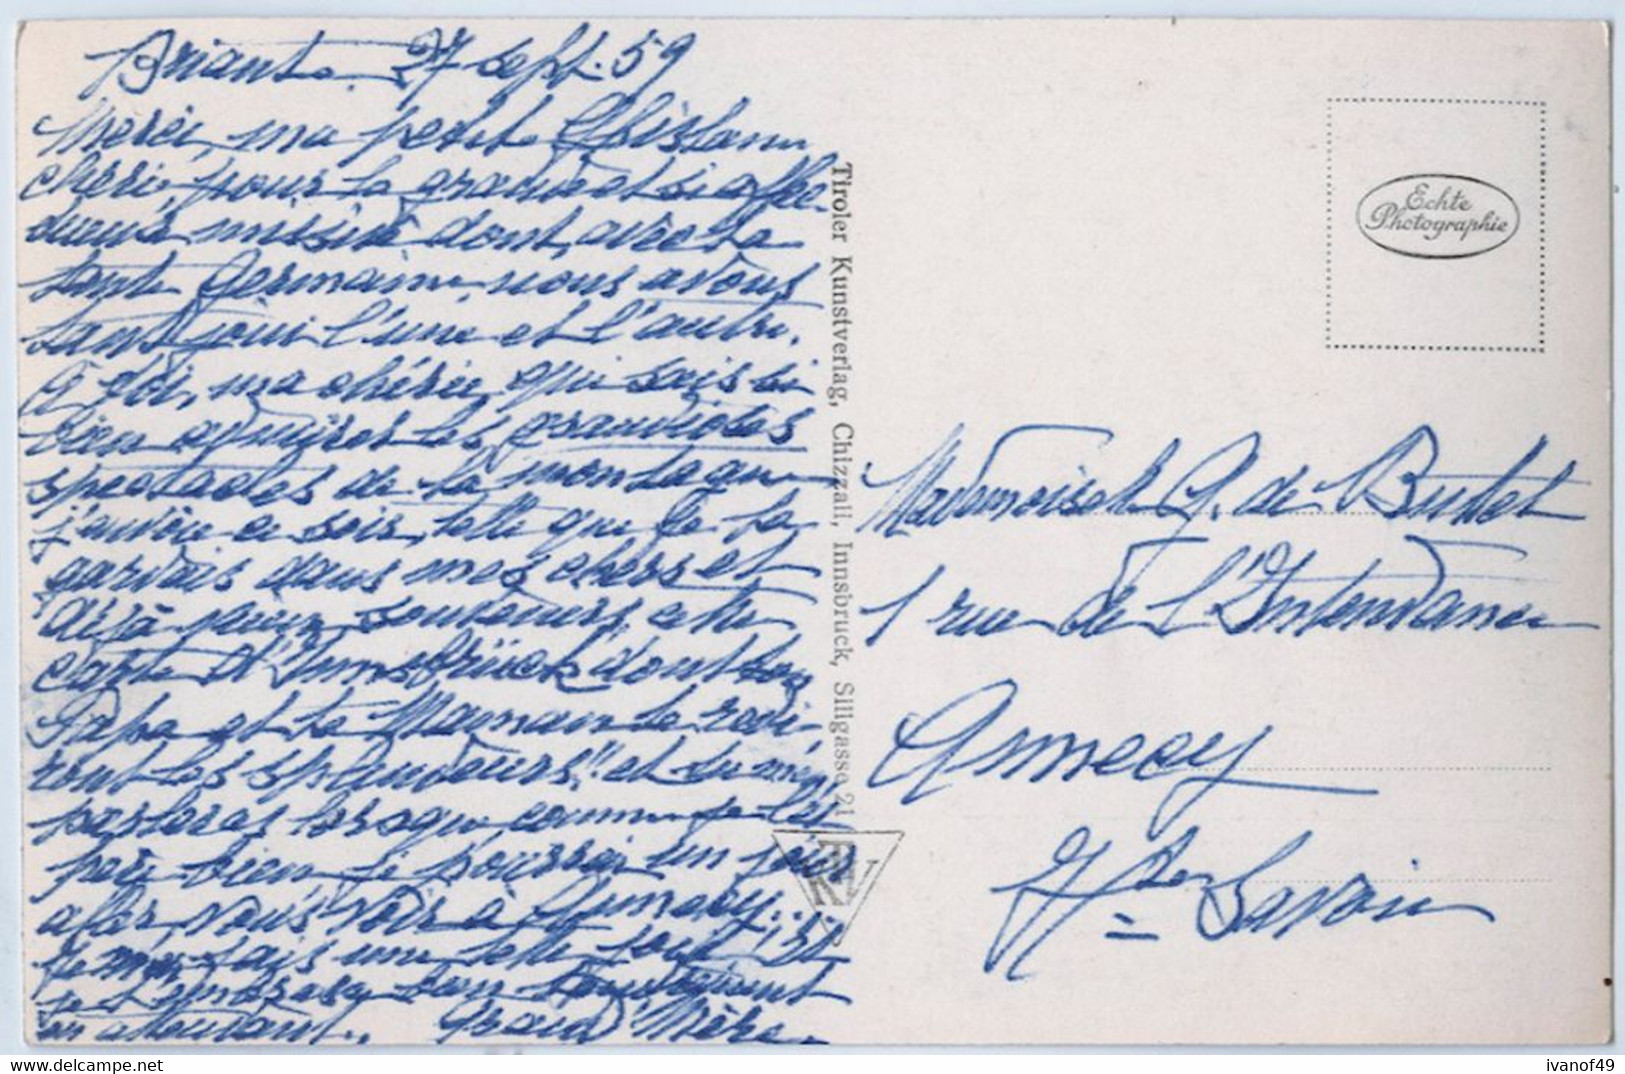 Briant 27 sept. 59
Merci, ma petite Ghislaine
chérie, pour ta grande et si affec-
tueuse missive dont, avec ta
tante Germaine, nous avons
tant joui l'une et l'autre.
À toi, ma chérie, qui sais si
bien admirer les grandioses
spectacles de la montagne
j'envoie ce soir, telle que je la
gardais dans mes chers et
déjà vieux souvenirs, cette
carte d'Innsbrück dont ton
Papa et ta Maman te redi-
ront les splendeurs!! et tu m'en
parleras lorsque, comme je l'es-
père bien je pourrai un jour
aller vous voir à Annecy...
je m'en fais une telle joie!
je t'embrasse bien tendrement
en attendant. Grand'Mère.
Tiroler Kunstverlag, Chizzali, Innsbruck, Sillgasse 21
TKV
Echte
Photographie
Mademoiselle G. de Buttet
1 rue de l'Intendance
Annecy
Hte Savoie
ivanof49